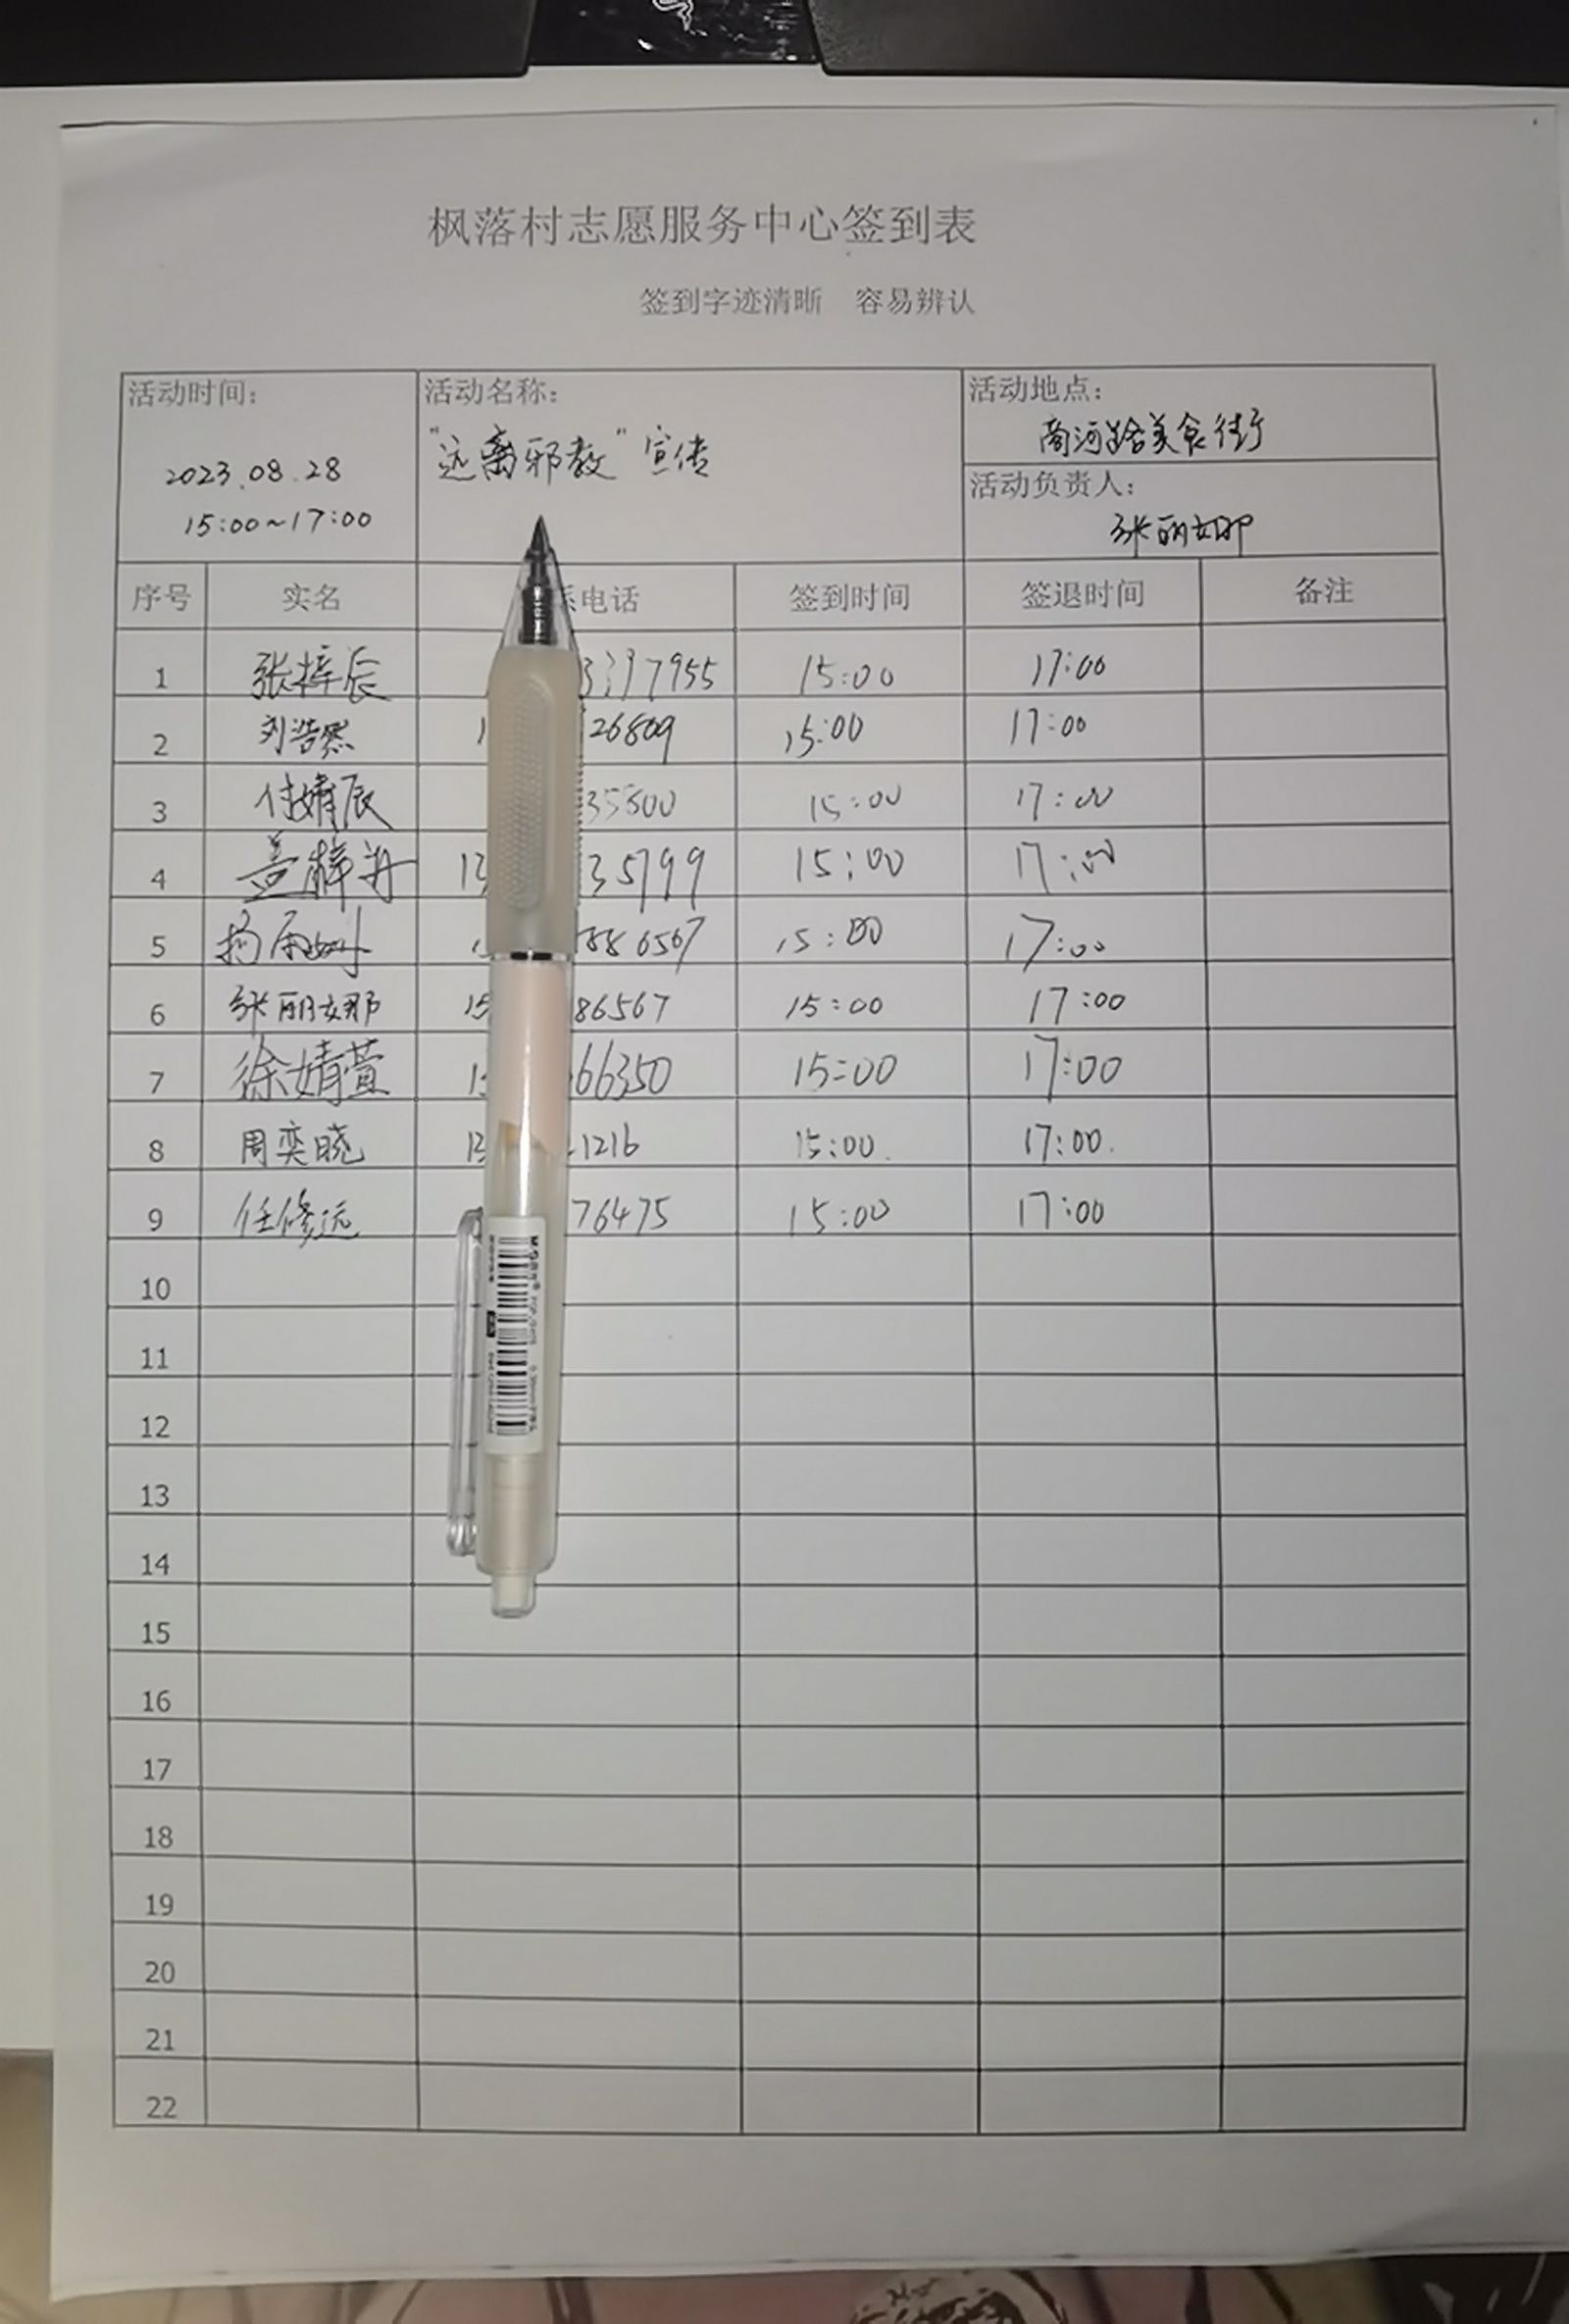 枫落村志愿服务中心签到表
签到字迹清晰 容易辨认
活动时间: 活动名称: 活动地点:
商河路美食街
"远离邪教"宣传
2023.08.28
活动负责人:
15:00~17:00
张丽娜
序号 实名 系电话 签到时间 签退时间 备注
1 张梓辰 3397955 15:00 17:00
2 刘浩然 1 26809 15:00 17:00
3 付婧辰 35800 15:00 17:00
4 盖梓 13 35799 15:00 17:00
5 杨雨 1 886567 15:00 17:00
6 张丽娜 15 86567 15:00 17:00
7 徐婧萱 1 66350 15:00 17:00
8 周奕晓 13 1216 15:00. 17:00.
9 任修远 76475 15:00 17:00
10
11
12
13
14
15
16
17
18
19
20
21
22